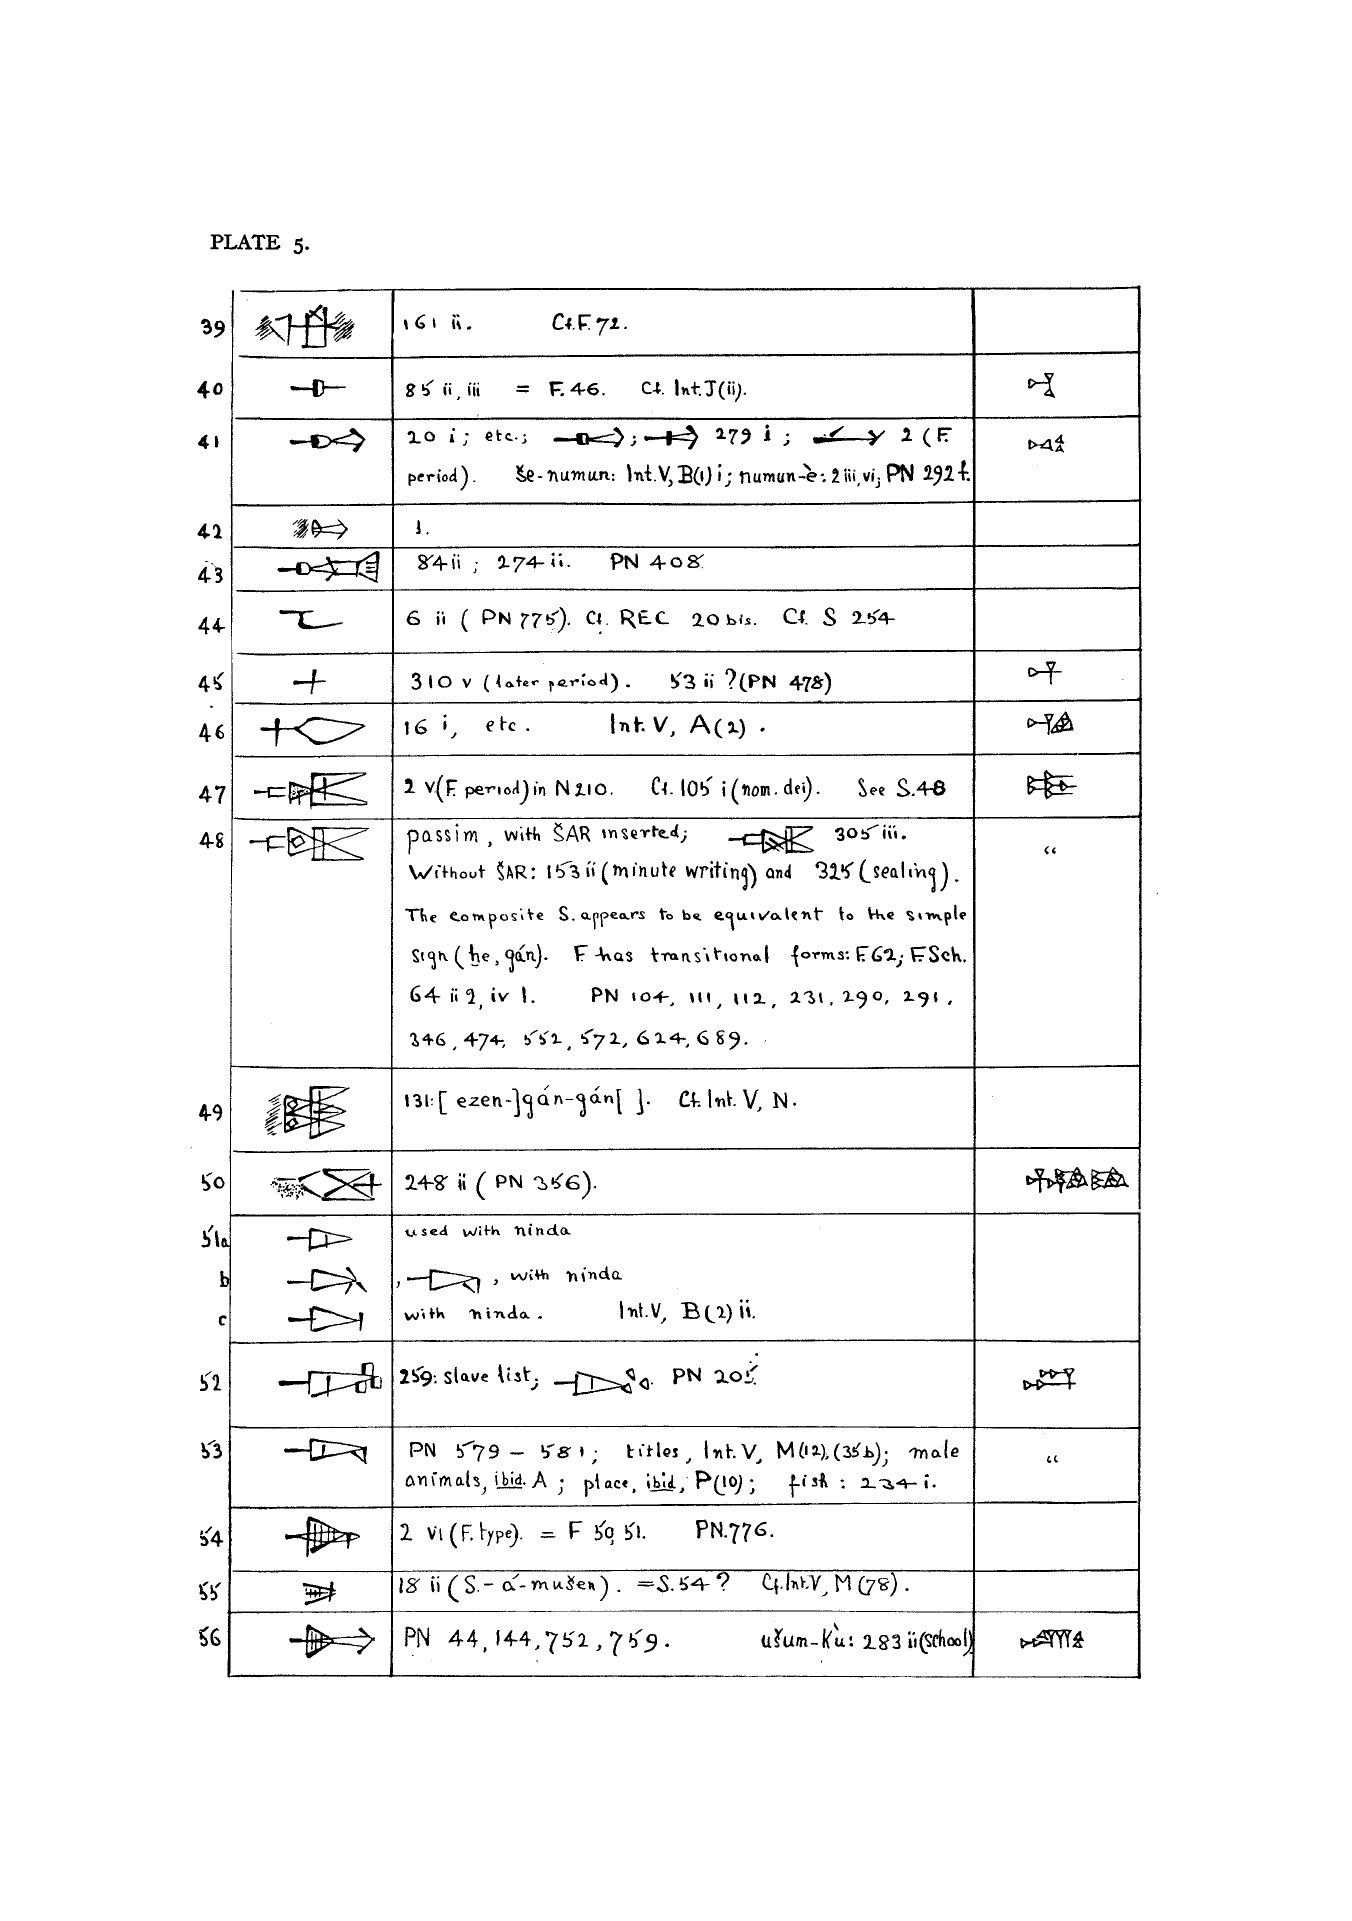 PLATE 5.
39 161 ii. Cf. F. 72.
40 85 ii, iii = F. 46. Cf. Int. J(ii).
41 20 i; etc.; ; 279 i; 2 (F.
period). še-numun: Int. V, B(1) i; numun-è: 2 iii, vi; PN 292 f.
42 1.
43 84 ii; 274 ii. PN 408.
44 6 ii (PN 775). Cf. REC 20 bis. Cf. S 254
45 310 v (later period). 53 ii ? (PN 478)
46 16 i, etc. Int. V, A(2).
47 2 v (F. period) in N 210. Cf. 105 i (nom. dei). See S. 48
48 passim, with ŠAR inserted; 305 iii. “
Without ŠAR: 153 ii (minute writing) and 325 (sealing).
The composite S. appears to be equivalent to the simple
sign (ḫe, gán). F. has transitional forms: F. 62; F. Sch.
64 ii 2, iv 1. PN 104, 111, 112, 231, 290, 291,
346, 474, 552, 572, 624, 689.
49 131: [ezen-]gán-gán[ ]. Cf. Int. V, N.
50 248 ii (PN 356).
51a used with ninda
b , , with ninda
c with ninda. Int. V, B(2) ii.
52 259: slave list; PN 205.
53 PN 579 – 581; titles, Int. V, M(12), (35b); male “
animals, ibid. A; place, ibid, P(10); fish: 234 i.
54 2 vi (F. type). = F 50, 51. PN. 776.
55 18 ii (S.-á-mušen). = S. 54? Cf. Int. V, M(78).
56 PN 44, 144, 752, 759. ušum-kù: 283 ii (school)